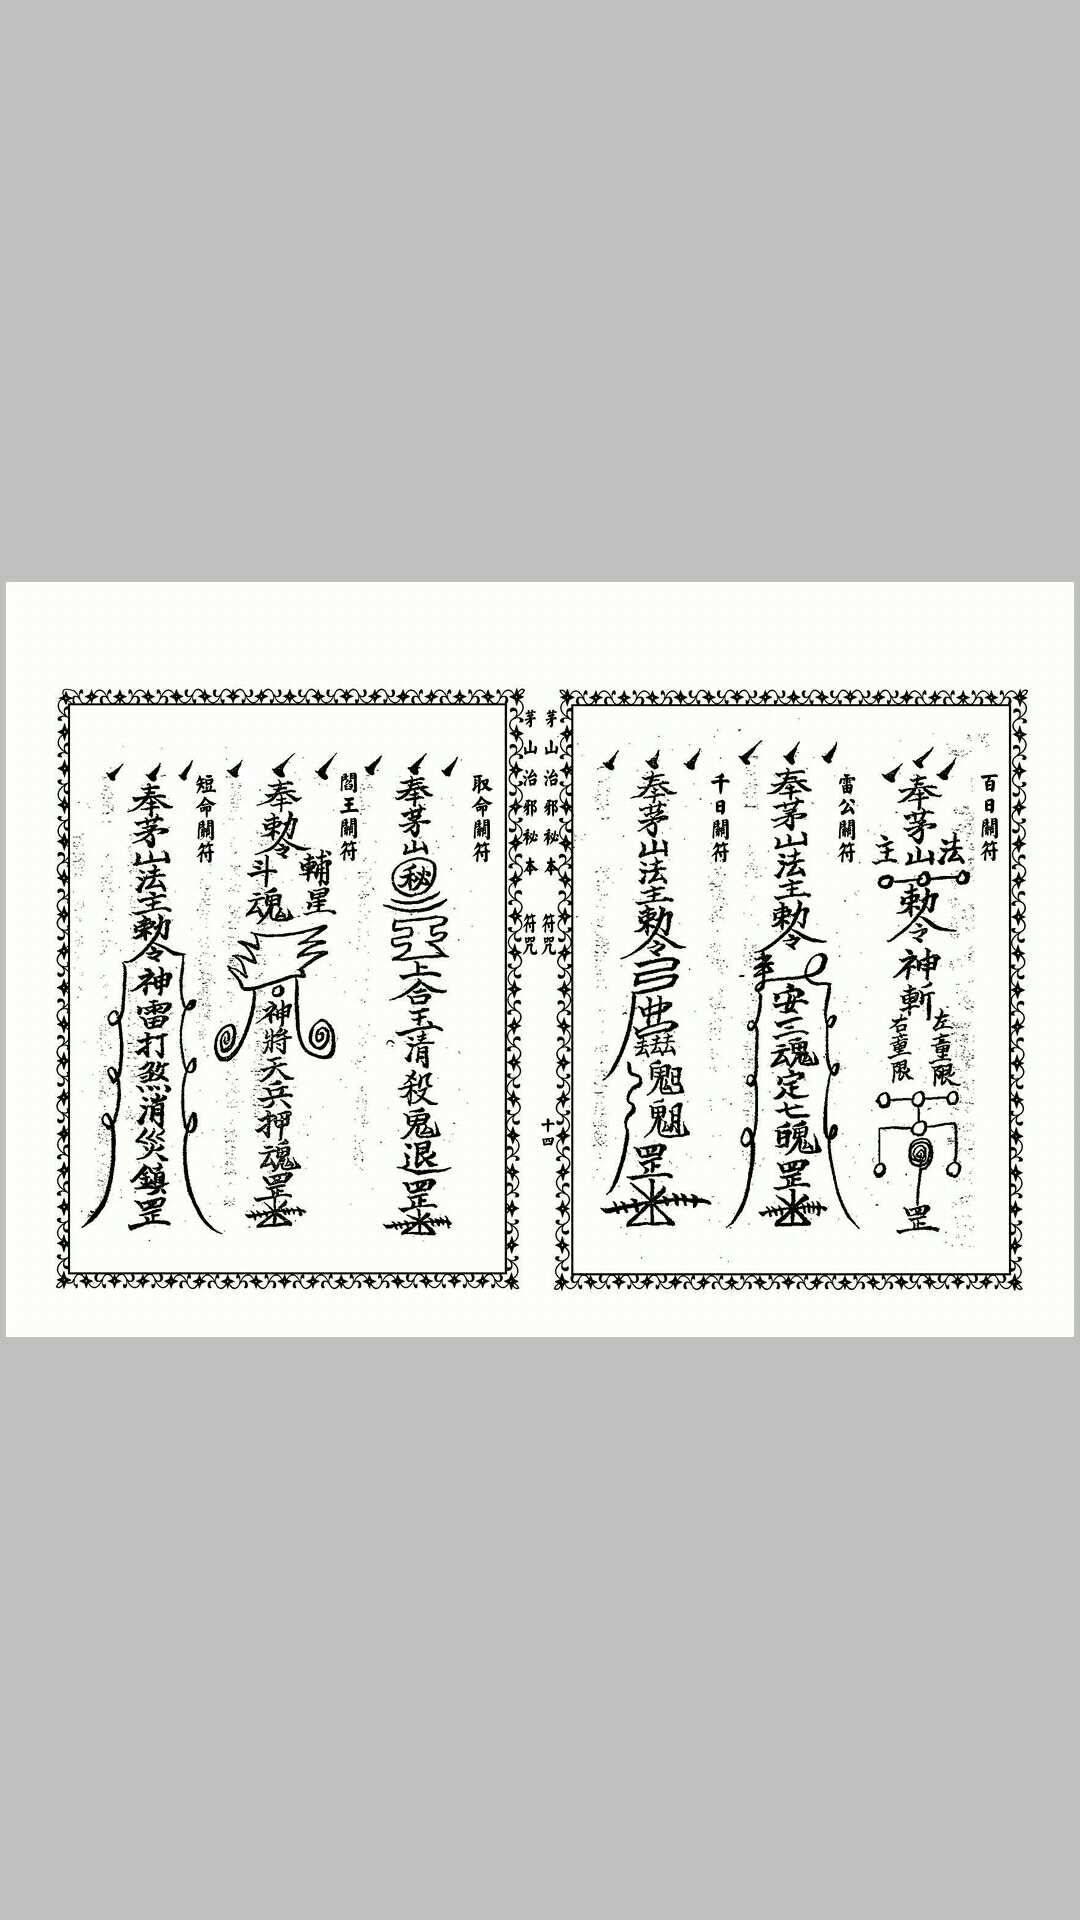 百日關符
奉茅山法主
勅令
神斬
左童限
右童限
罡
雷公關符
奉茅山法主勅令
安三魂定七魄罡
千日關符
奉茅山法主勅令
罡
茅山治邪秘本 符咒
十四
茅山治邪秘本 符咒
取命關符
奉茅山
秘
上合玉清殺鬼退罡
閻王關符
奉勅令
輔星
斗魂
神將天兵押魂罡
短命關符
奉茅山法主勅令
神雷打煞消災鎮罡